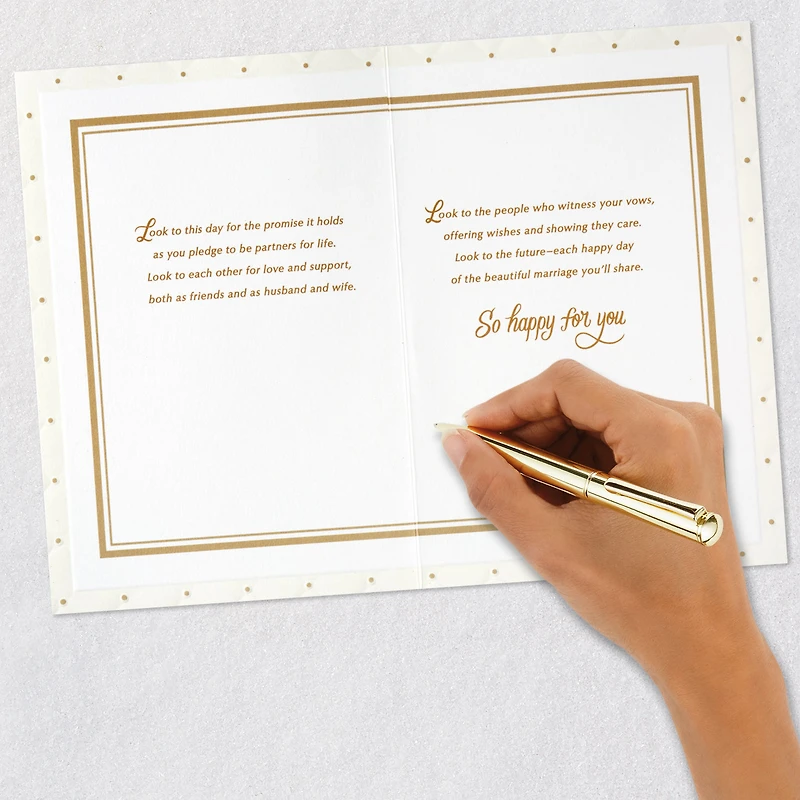 Look to this day for the promise it holds
as you pledge to be partners for life.
Look to each other for love and support,
both as friends and as husband and wife.
Look to the people who witness your vows,
offering wishes and showing they care.
Look to the future—each happy day
of the beautiful marriage you'll share.
So happy for you